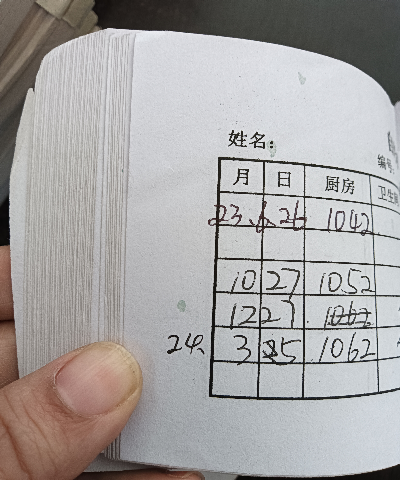 姓名:
编号
月 日 厨房 卫生
23.6.26 1042
10 27 1052
12 27 1062
24、3 25 1062